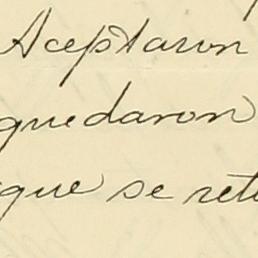 Aceptaron
quedaron
que se